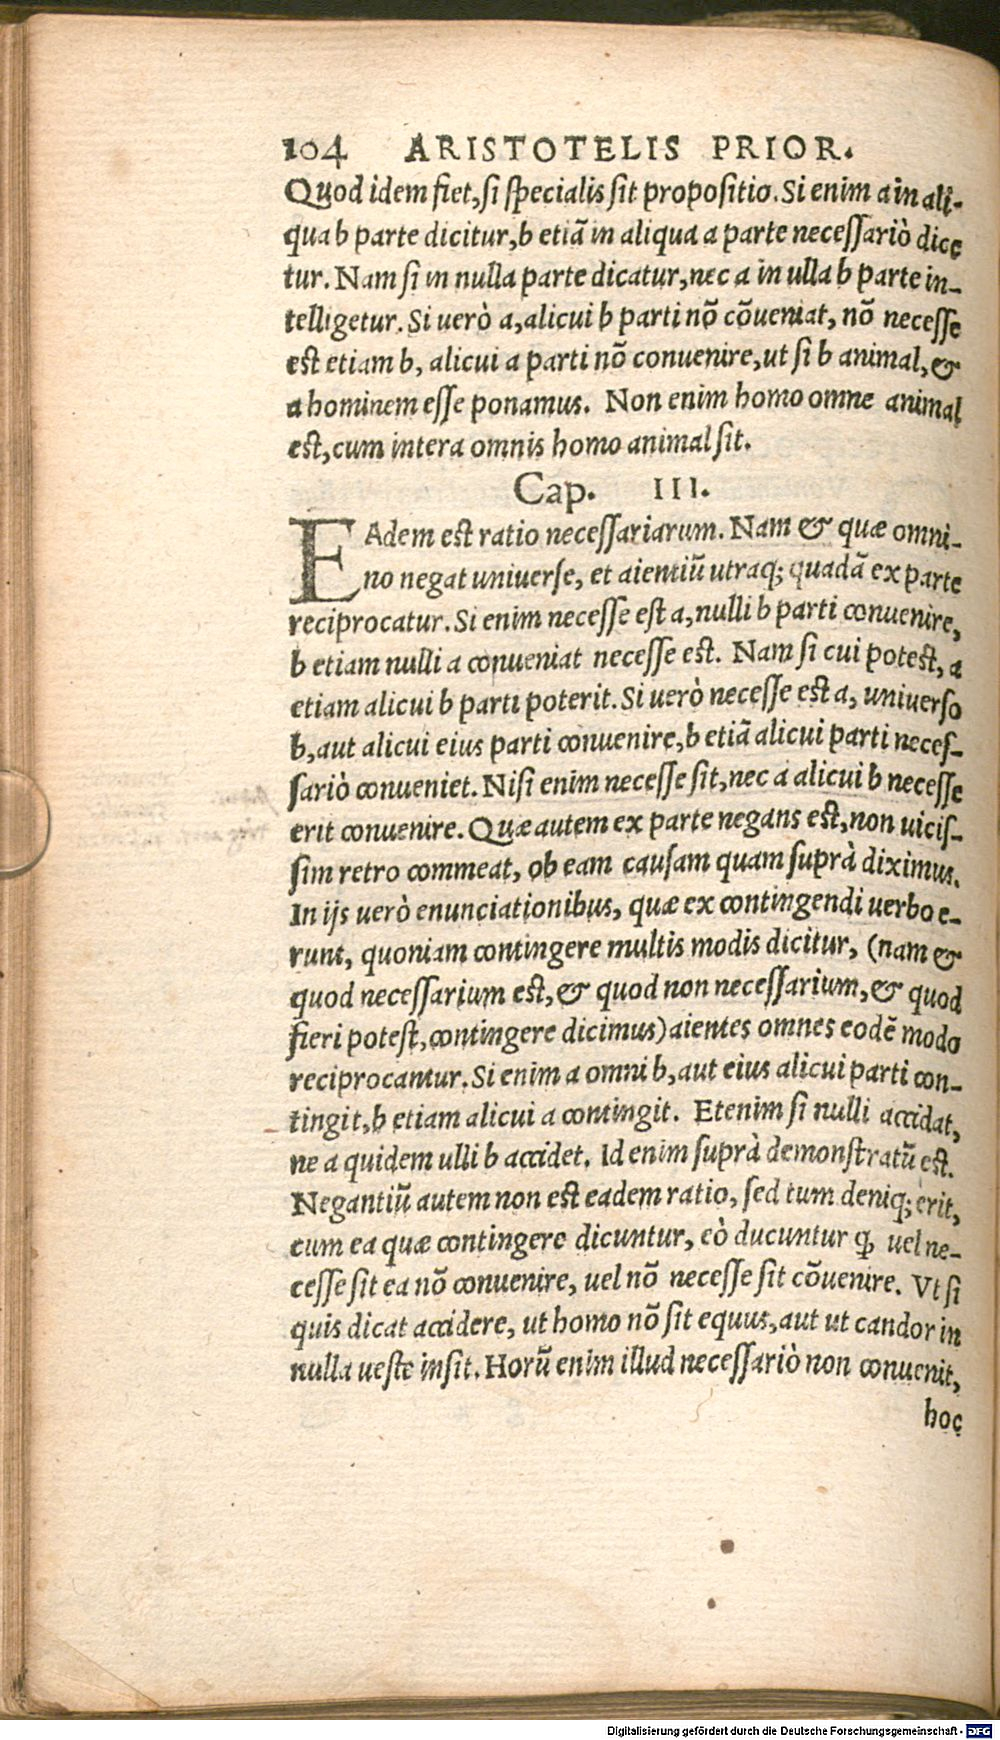 104 ARISTOTELIS PRIOR.
Quod idem fiet, si specialis sit propositio. Si enim a in ali-
qua b parte dicitur, b etiã in aliqua a parte necessariò dice
tur. Nam si in nulla parte dicatur, nec a in ulla b parte in-
telligetur. Si uerò a, alicui b parti nõ cõueniat, nõ necesse
est etiam b, alicui a parti nõ conuenire, ut si b animal, &
a hominem esse ponamus. Non enim homo omne animal
est, cum intera omnis homo animal sit.
Cap. III.
EAdem est ratio necessariarum. Nam & quæ omni-
no negat universe, et aientiũ utraq; quadã ex parte
reciprocatur. Si enim necesse est a, nulli b parti convenire,
b etiam nulli a conueniat necesse est. Nam si cui potest, a
etiam alicui b parti poterit. Si uerò necesse est a, universo
b, aut alicui eius parti conuenire, b etiã alicui parti neces-
sariò conueniet. Nisi enim necesse sit, nec a alicui b necesse
erit conuenire. Quæ autem ex parte negans est, non uicis-
sim retro commeat, ob eam causam quam suprà diximus.
In ijs uerò enunciationibus, quæ ex contingendi uerbo e-
runt, quoniam contingere multis modis dicitur, (nam &
quod necessarium est, & quod non necessarium, & quod
fieri potest, contingere dicimus) aientes omnes eodẽ modo
reciprocantur. Si enim a omni b, aut eius alicui parti con-
tingit, b etiam alicui a contingit. Etenim si nulli accidat,
ne a quidem ulli b accidet. Id enim suprà demonstratũ est.
Negantiũ autem non est eadem ratio, sed tum deniq; erit,
cum ea quæ contingere dicuntur, eò ducuntur ꝙ uel ne-
cesse sit ea nõ conuenire, uel nõ necesse sit cõuenire. Vt si
quis dicat accidere, ut homo nõ sit equus, aut ut candor in
nulla ueste insit. Horũ enim illud necessariò non conuenit,
hoc
Digitalisierung gefördert durch die Deutsche Forschungsgemeinschaft - DFG